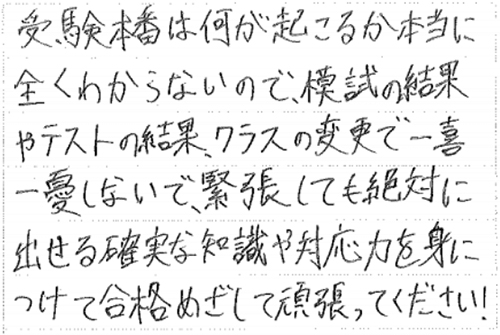 受験本番は何が起こるか本当に
全くわからないので、模試の結果
やテストの結果、クラスの変更で一喜
一憂しないで、緊張しても絶対に
出せる確実な知識や対応力を身に
つけて合格めざして頑張ってください!